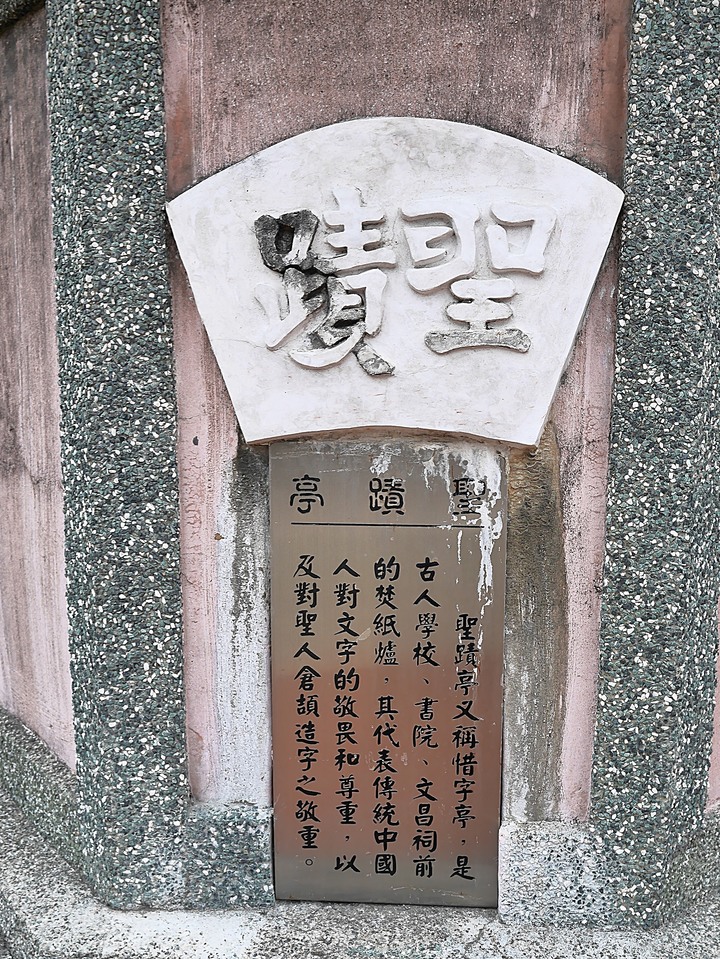 聖蹟
聖蹟亭
聖蹟亭又稱惜字亭，是
古人學校、書院、文昌祠前
的焚紙爐，其代表傳統中國
人對文字的敬畏和尊重，以
及對聖人倉頡造字之敬重。